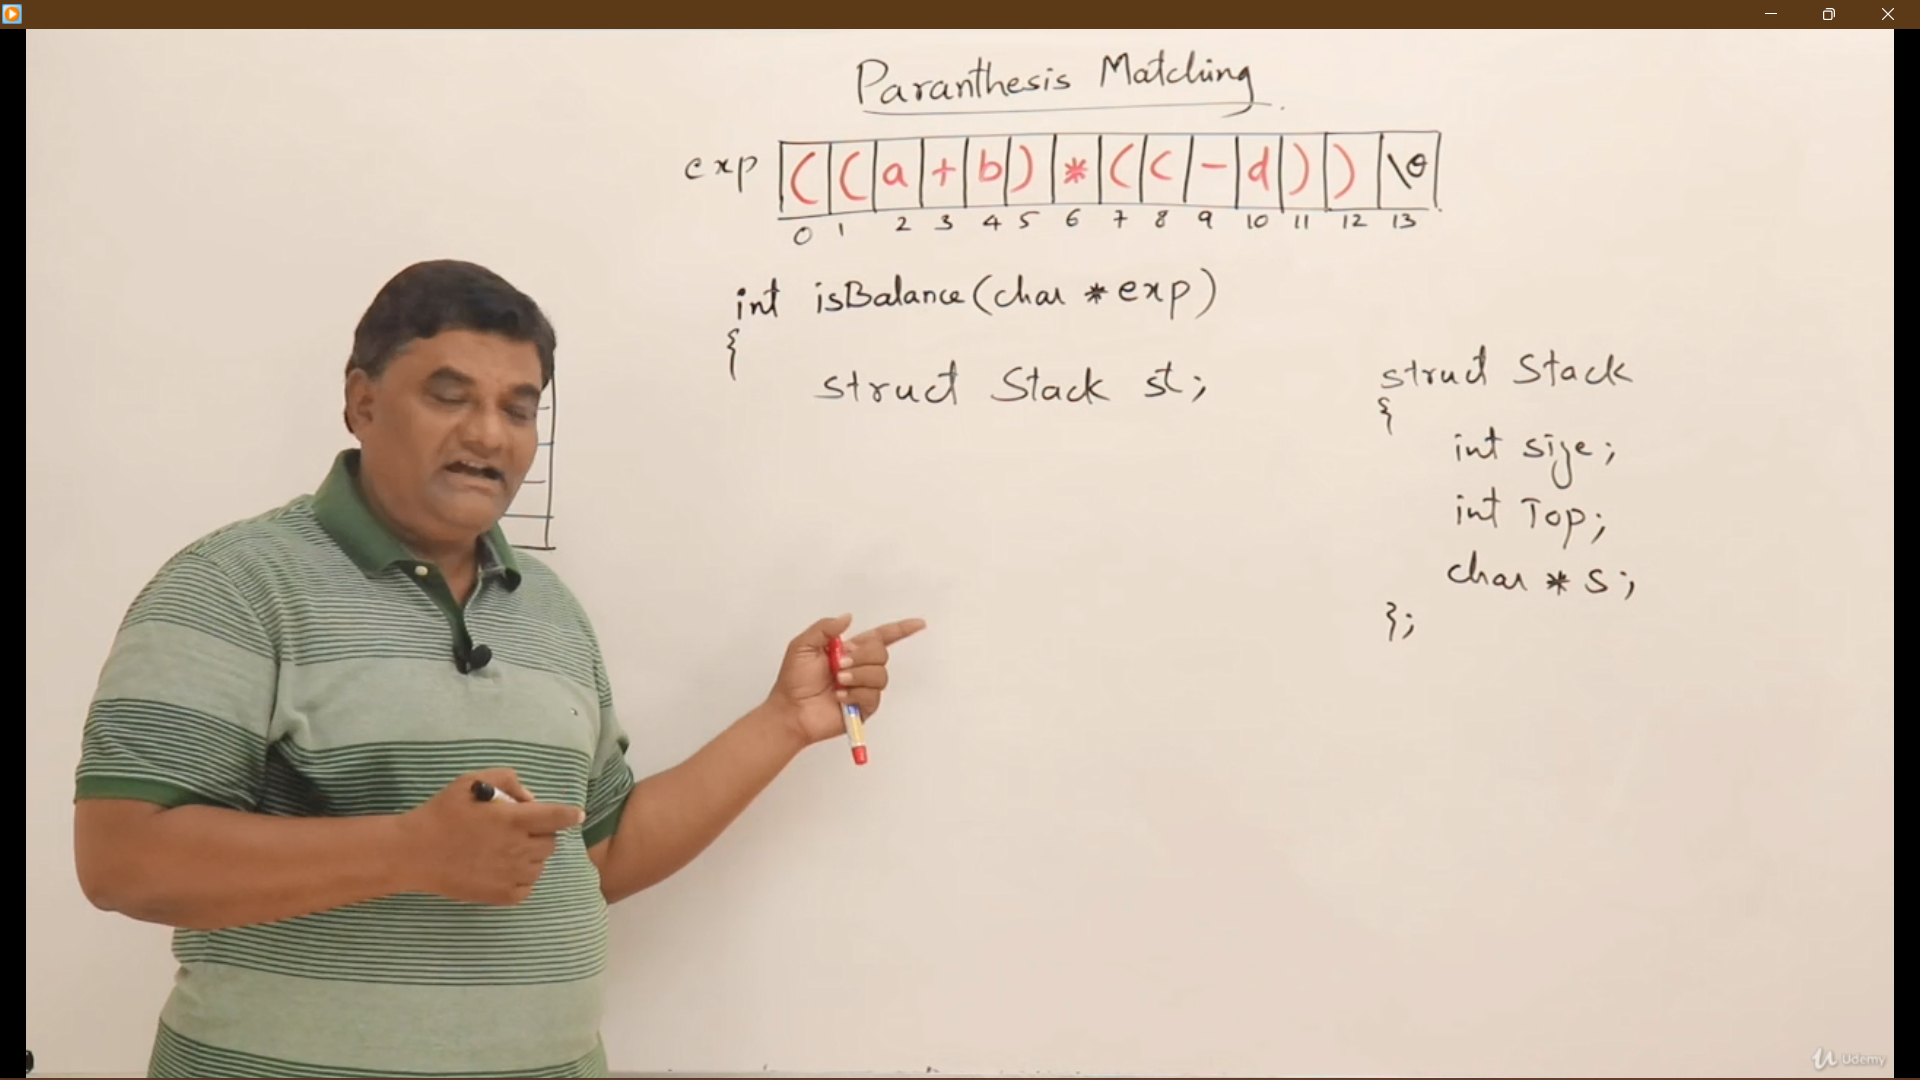 Paranthesis Matching
exp ( ( a + b ) * ( c - d ) ) \0
0 1 2 3 4 5 6 7 8 9 10 11 12 13
int isBalance(char *exp)
{
struct Stack st;
struct Stack
{
int size;
int Top;
char *s;
};
Udemy